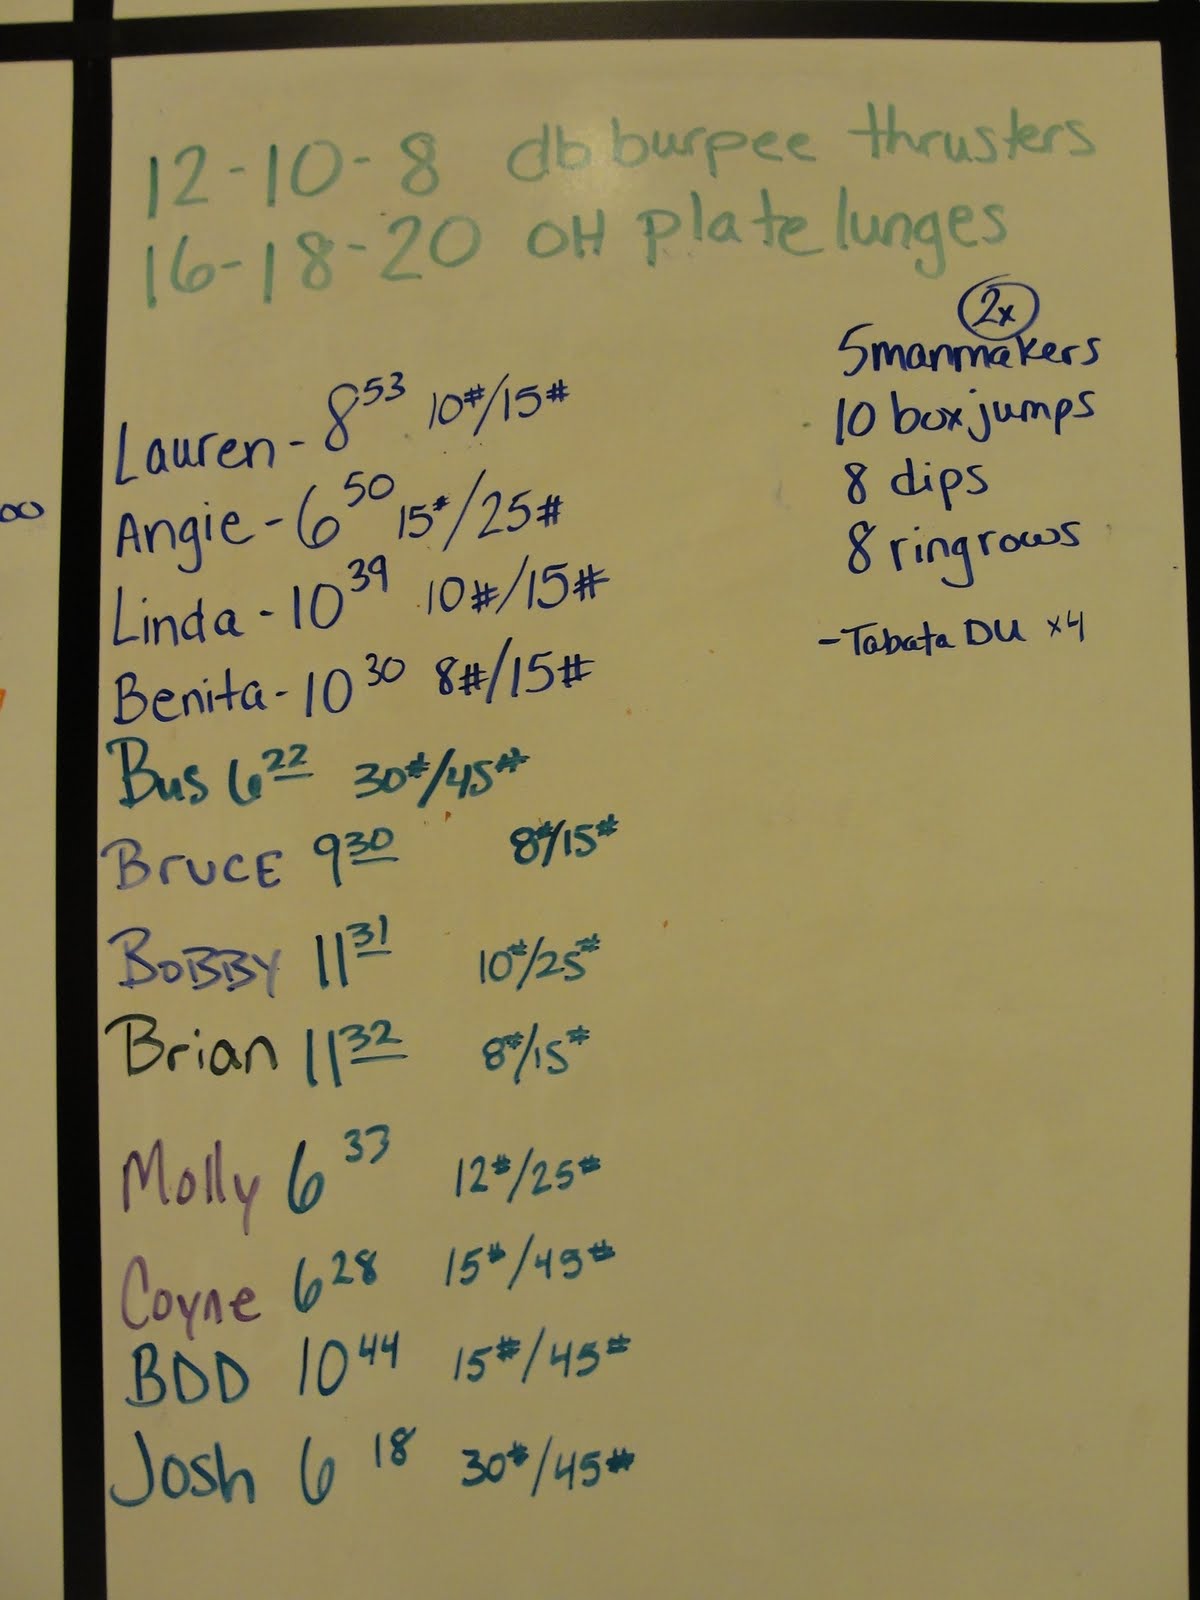 12-10-8 db burpee thrusters
16-18-20 OH plate lunges
2x
5 manmakers
10 box jumps
8 dips
8 ring rows
- Tabata DU x4
Lauren - 8 53 10#/15#
Angie - 6 50 15#/25#
Linda - 10 39 10#/15#
Benita - 10 30 8#/15#
Bus 6 22 30#/45#
BRUCE 9 30 8#/15#
BOBBY 11 31 10#/25#
Brian 11 32 8#/15#
Molly 6 33 12#/25#
Coyne 6 28 15#/45#
BDD 10 44 15#/45#
Josh 6 18 30#/45#
00